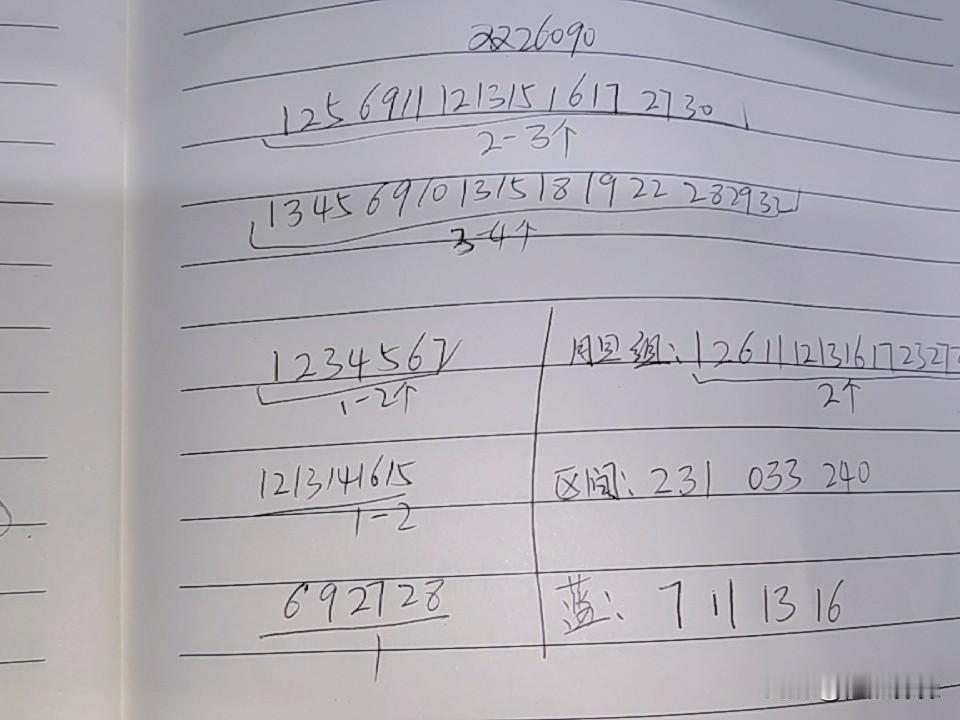 2226090
1 2 5 6 9 11 12 13 15 16 17 27 30
2-3个
1 3 4 5 6 9 10 13 15 18 19 22 28 29 33
3-4个
1 2 3 4 5 6 7
1-2个
组: 1 2 6 11 12 13 16 17 23 27
2个
12 13 14 16 15
1-2
区间: 231 033 240
6 9 27 28
1
蓝: 7 11 13 16